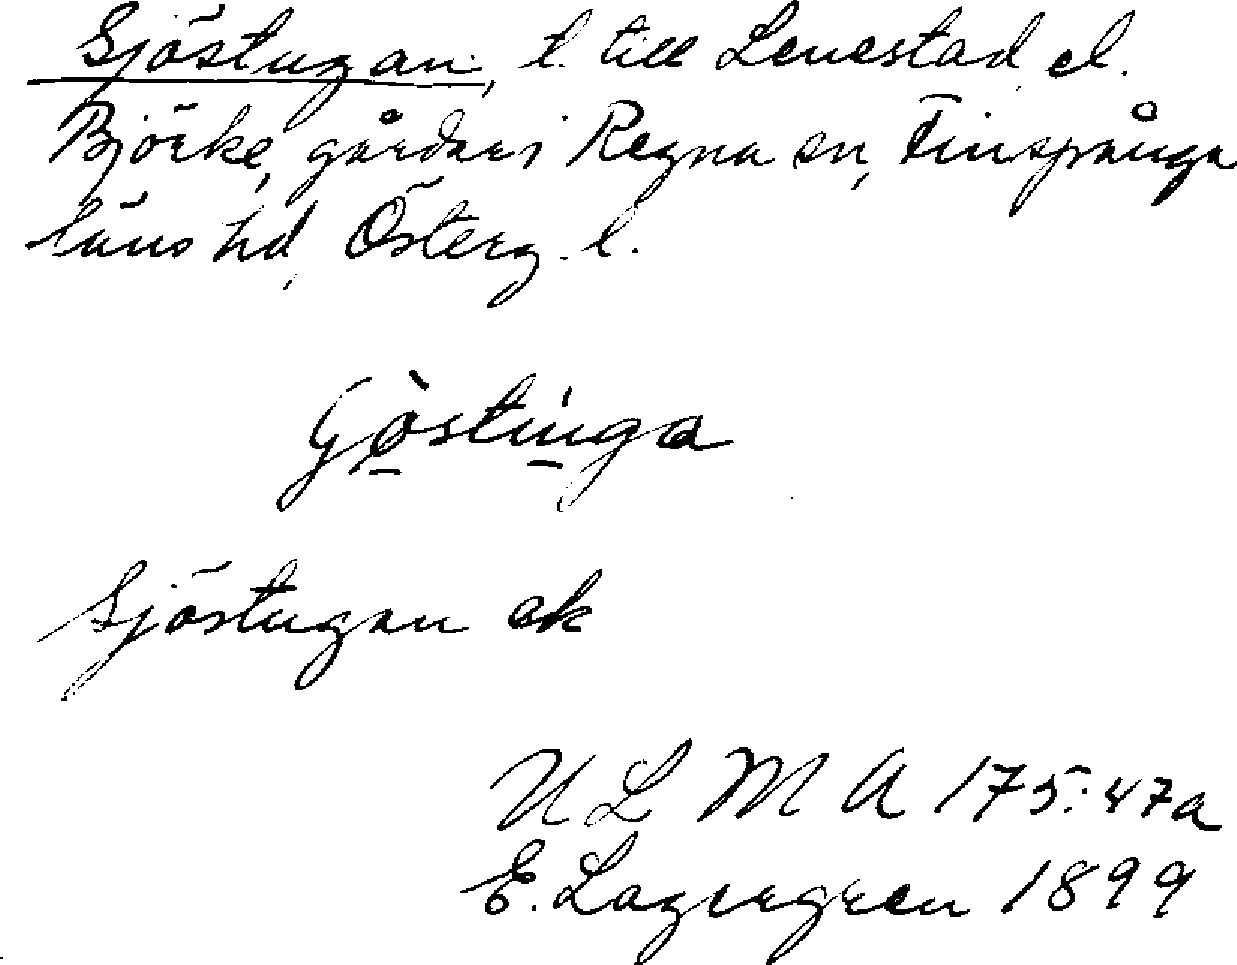 Sjöstugan, t. till Levestad el.
Björke, gårdar i Regna sn, Finspånga
läns hd, Österg. l.
Gòstinga
Sjöstugan ek
U L M A 175:47a
E. Lagergren 1899